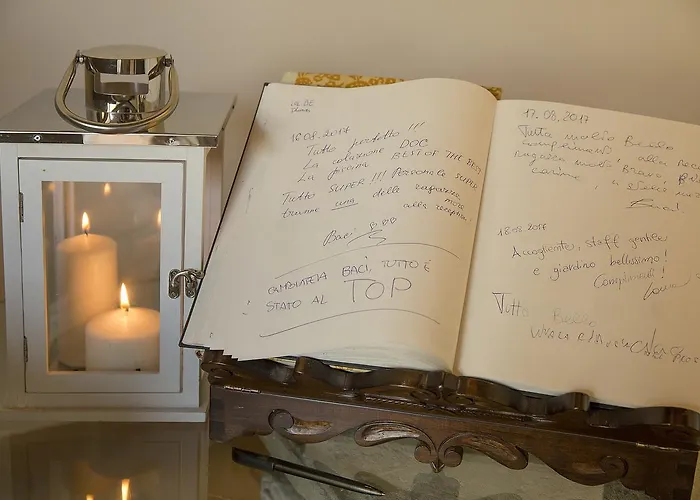 16.08.2017
Tutto perfetto !!!
La colazione DOC
La piscina BEST OF THE BEST
Tutto SUPER !!! Personale SUPER
tranne una delle ragazze more
alla reception!
Baci
CAMBIATELA BACI, TUTTO È
STATO AL TOP
17.08.2017
Tutto molto Bello
complimenti alla
ragazza molto Brava,
carine, e
18.08.2017
Accogliente, staff gentile
e giardino bellissimo!
Complimenti!
Tutto Bello